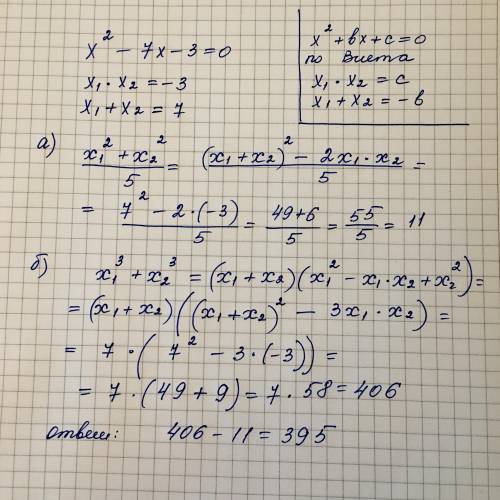 x² - 7x - 3 = 0
x₁ · x₂ = -3
x₁ + x₂ = 7
x² + bx + c = 0
по Виета
x₁ · x₂ = c
x₁ + x₂ = -b
а) (x₁² + x₂²)/5 = ((x₁ + x₂)² - 2x₁ · x₂)/5 =
= (7² - 2 · (-3))/5 = (49+6)/5 = 55/5 = 11
б) x₁³ + x₂³ = (x₁ + x₂)(x₁² - x₁ · x₂ + x₂²) =
= (x₁ + x₂)((x₁ + x₂)² - 3x₁ · x₂) =
= 7 · (7² - 3 · (-3)) =
= 7 · (49 + 9) = 7 · 58 = 406
ответ: 406 - 11 = 395